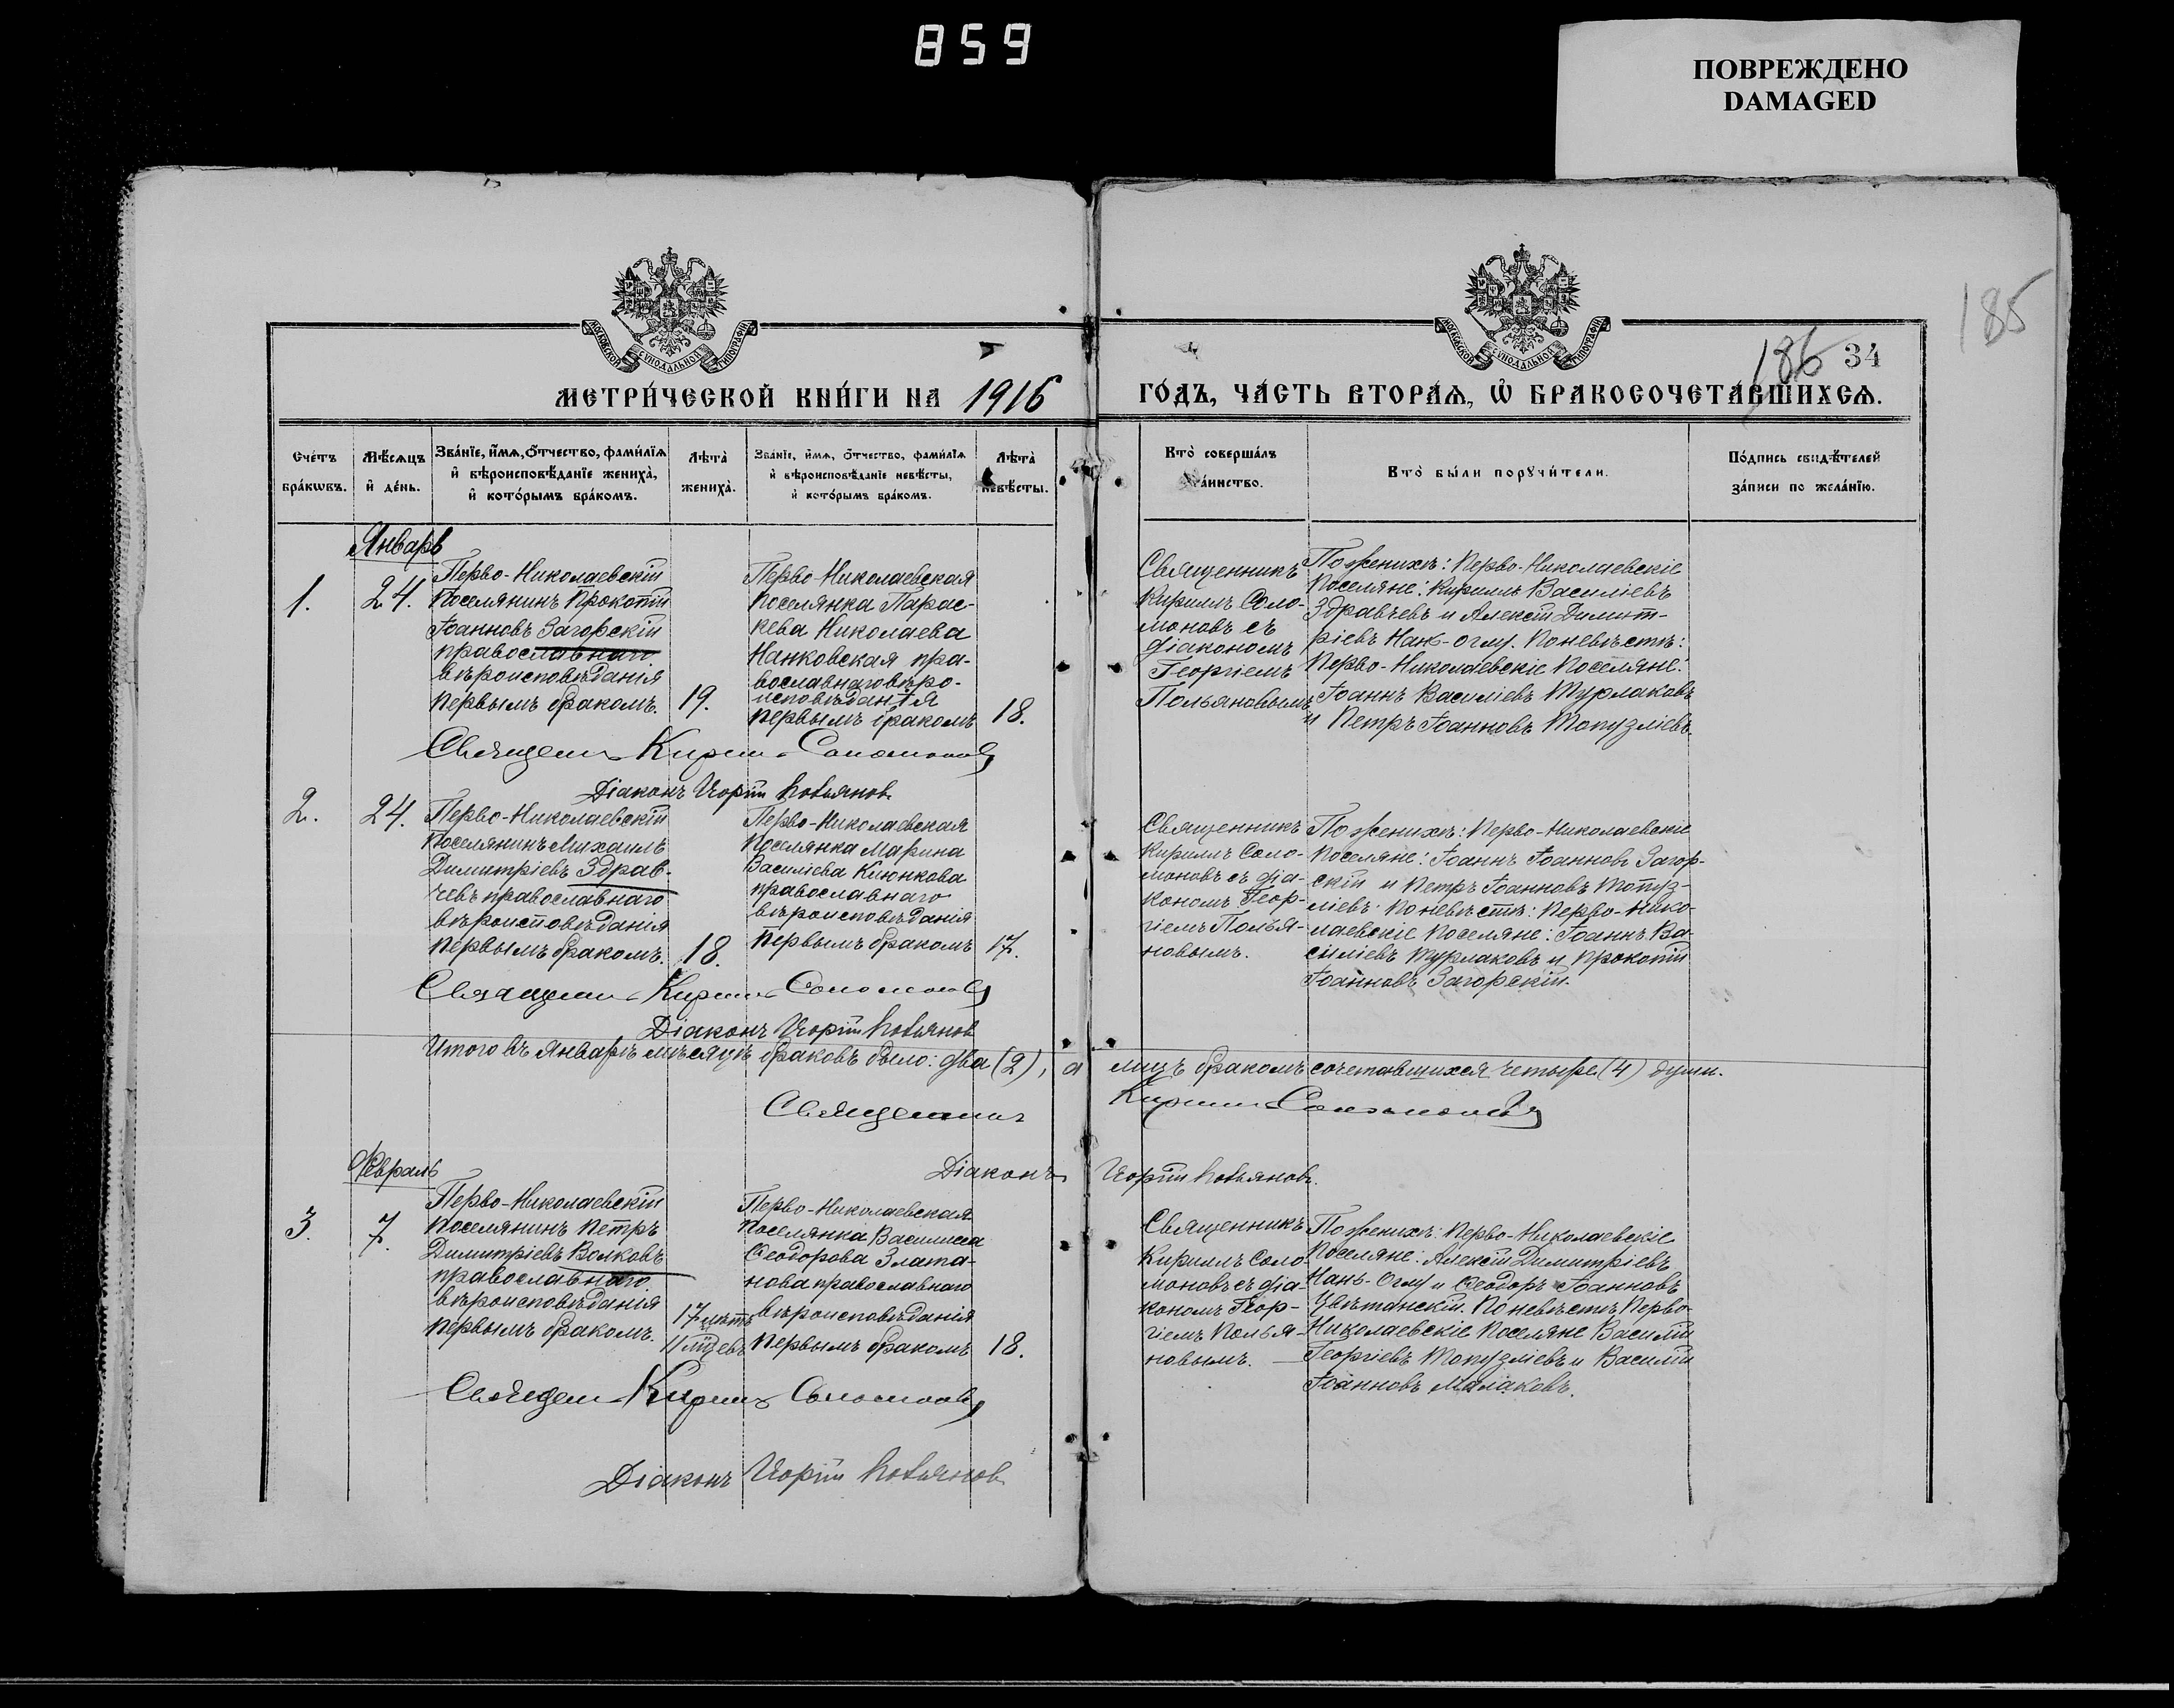 859
ПОВРЕЖДЕНО
DAMAGED
185
186 34
МОСКОВСКОЙ СѴНОДАЛЬНОЙ ТИПОГРАФІИ
МОСКОВСКОЙ СѴНОДАЛЬНОЙ ТИПОГРАФІИ
МЕТРИ́ЧЕСКОЙ КНИ́ГИ НА 1916
ГО́ДЪ, ЧА́СТЬ ВТОРА́Ѧ, Ѡ҆ БРАКОСОЧЕТА́ВШИХСѦ.
Сче́тъ
бра́кѡвъ.
Мѣ́сѧцъ
и҆ де́нь.
Зва́нїе, и҆́мѧ, ѻ҆́тчество, фами́лїѧ
и҆ вѣроисповѣ́данїе жениха̀,
и҆ кото́рымъ бра́комъ.
Лѣта̀
жениха̀.
Зва́нїе, и҆́мѧ, ѻ҆́тчество, фами́лїѧ
и҆ вѣроисповѣ́данїе невѣ́сты,
и҆ кото́рымъ бра́комъ.
Лѣта̀
невѣ́сты.
Кто̀ соверша́лъ
та́инство.
Кто̀ бы́ли порꙋчи́тели.
По́дпись свидѣ́телей
за́писи по жела́нїю.
Январь
1.
24.
Перво-Николаевскій
поселянинъ Прокопій
Іоанновъ Загорскій
православнаго
вѣроисповѣданія
первымъ бракомъ.
19.
Перво-Николаевская
поселянка Парас-
кева Николаева
Нанковская пра-
вославнаго вѣро-
исповѣданія
первымъ бракомъ
18.
Священникъ
Кириллъ Соло-
моновъ съ
діакономъ
Георгіемъ
Польяновымъ
По женихѣ: Перво-Николаевскіе
поселяне: Кириллъ Василіевъ
Здравчевъ и Алексій Димит-
ріевъ Нань-Оглу. По невѣстѣ:
Перво-Николаевскіе поселяне:
Іоаннъ Василіевъ Турлаковъ
и Петръ Іоанновъ Топузліевъ.
Священникъ Кириллъ Соломоновъ
Діаконъ Георгій Польяновъ
2.
24.
Перво-Николаевскій
поселянинъ Михаилъ
Димитріевъ Здрав-
чевъ православнаго
вѣроисповѣданія
первымъ бракомъ.
18.
Перво-Николаевская
поселянка Марина
Василіева Киюнкова
православнаго
вѣроисповѣданія
первымъ бракомъ
17.
Священникъ
Кириллъ Соло-
моновъ съ діа-
кономъ Геор-
гіемъ Полья-
новымъ.
По женихѣ: Перво-Николаевскіе
поселяне: Іоаннъ Іоанновъ Загор-
скій и Петръ Іоанновъ Топуз-
ліевъ. По невѣстѣ: Перво-Нико-
лаевскіе поселяне: Іоаннъ Ва-
силіевъ Турлаковъ и Прокопій
Іоанновъ Загорскій.
Священникъ Кириллъ Соломоновъ
Діаконъ Георгій Польяновъ
Итого въ Январѣ мѣсяцѣ браковъ было: два (2), а лицъ бракомъ сочетавшихся четыре (4) души.
Священникъ Кириллъ Соломоновъ
Діаконъ Георгій Польяновъ.
Февраль
3.
7.
Перво-Николаевскій
поселянинъ Петръ
Димитріевъ Волковъ
православнаго
вѣроисповѣданія
первымъ бракомъ.
17 лѣтъ
Перво-Николаевская
поселянка Василиса
Ѳеодорова Злата-
нова православнаго
вѣроисповѣданія
первымъ бракомъ
18.
Священникъ
Кириллъ Соло-
моновъ съ діа-
кономъ Геор-
гіемъ Полья-
новымъ.
По женихѣ: Перво-Николаевскіе
поселяне: Алексій Димитріевъ
Нань-Оглу и Ѳеодоръ Іоанновъ
Цвѣтанскій. По невѣстѣ Перво-
Николаевскіе поселяне Василій
Георгіевъ Топузліевъ и Василій
Іоанновъ Малаковъ.
Священникъ Кириллъ Соломоновъ
Діаконъ Георгій Польяновъ